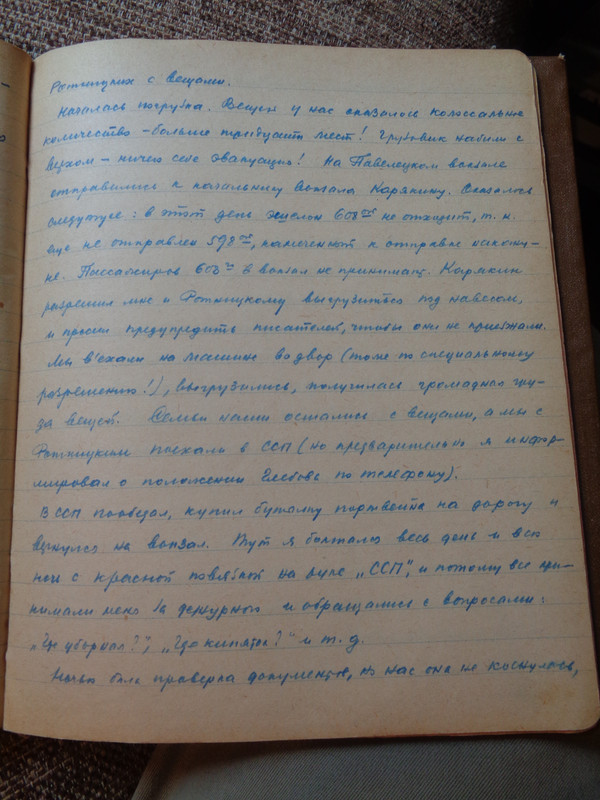 Ротницких с вещами.
Началась погрузка. Вещей у нас оказалось колоссальное
количество – больше тридцати мест! Грузовик набили с
верхом – ничего себе эвакуация! На Павелецком вокзале
отправились к начальнику вокзала Карякину. Оказалось
следующее: в этот день эшелон 608ой не отходит, т. к.
еще не отправлен 598ой, намеченный к отправке накану-
не. Пассажиров 608го в вокзал не принимают. Карякин
разрешил мне и Ротницкому выгрузиться под навесом,
и просил предупредить писателей, чтобы они не приезжали.
Мы въехали на машине во двор (тоже по специальному
разрешению!), выгрузились, получилась громадная гру-
да вещей. Семьи наши остались с вещами, а мы с
Ротницким поехали в ССП (но предварительно я инфор-
мировал о положении Глебова по телефону).
В ССП пообедал, купил бутылку портвейна на дорогу и
вернулся на вокзал. Тут я болтался весь день и всю
ночь с красной повязкой на руке „ССП", и потому все при-
нимали меня за дежурного и обращались с вопросами:
„Где уборная?", „Где кипяток?" и т. д.
Ночью была проверка документов, но нас она не коснулась,